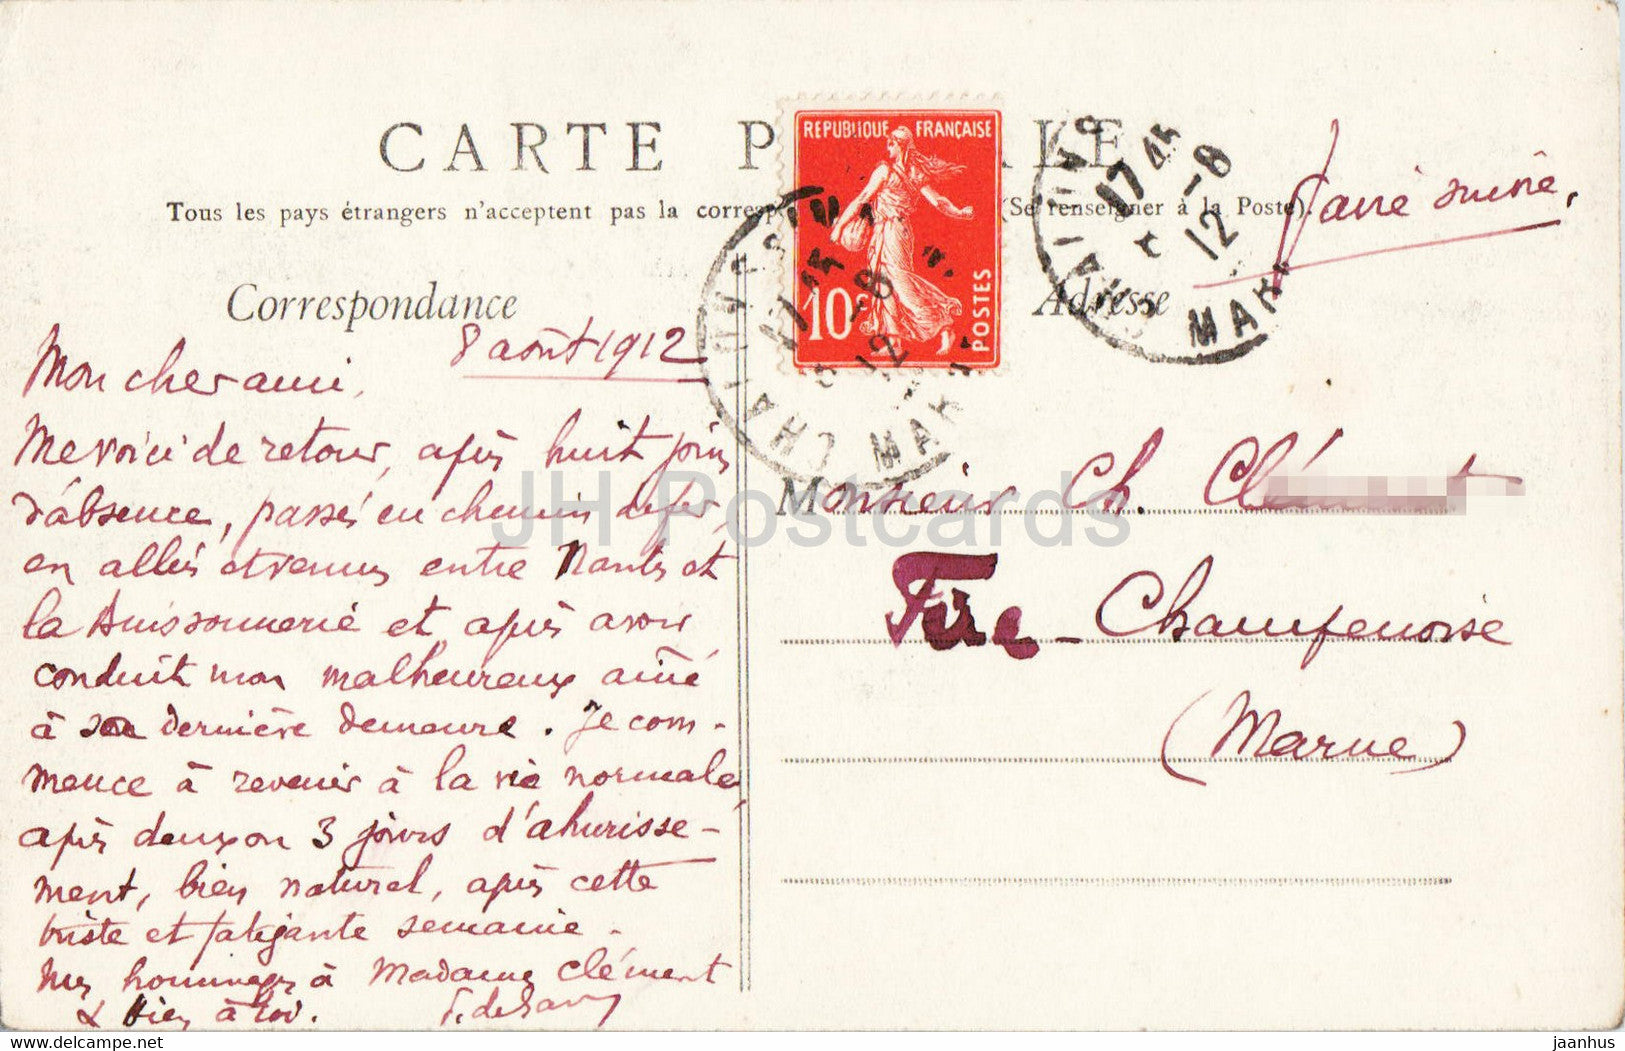 CARTE P
Tous les pays étrangers n'acceptent pas la corresp (Se renseigner à la Poste).
faire suivre.
REPUBLIQUE FRANÇAISE
10c POSTES
17 45
8-8
12
MARNE
Correspondance
Adresse
8 août 1912
Mon cher ami,
Me voici de retour, après huit jours
d'absence, passés en chemin de fer,
en allées et venues entre Nantes et
la Buissonnerie et après avoir
conduit mon malheureux aîné
à sa dernière demeure. Je com-
mence à revenir à la vie normale,
après deux ou 3 jours d'ahurisse-
ment, bien naturel, après cette
triste et fatigante semaine.
Mes hommages à Madame Clément
& bien à toi.
Monsieur Ch. Clément
Fère-Champenoise
(Marne)
JH Postcards
www.hippostcard.com/store/jh-postcards
jaanhus